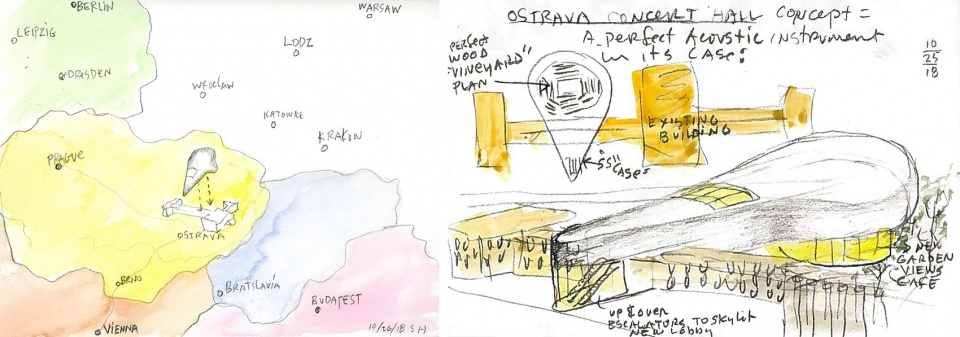 BERLIN
WARSAW
LEIPZIG
LODZ
DRESDEN
WROCLAW
KATOWKE
KRAKON
PRAGUE
OSTRAVA
BRNO
BRATSLAVIA
BUDAPEST
VIENNA
10/20/18 SH
OSTRAVA CONCERT HALL CONCEPT =
A PERFECT ACOUSTIC INSTRUMENT
IN ITS CASE!
10
25
18
PERFECT
WOOD
"VINEYARD"
PLAN
EXISTING
BUILDING
"SS"
CASE
NEW
GARDEN
VIEWS
CASE
UP & OVER
ESCALATORS TO SKYLIT
NEW LOBBY